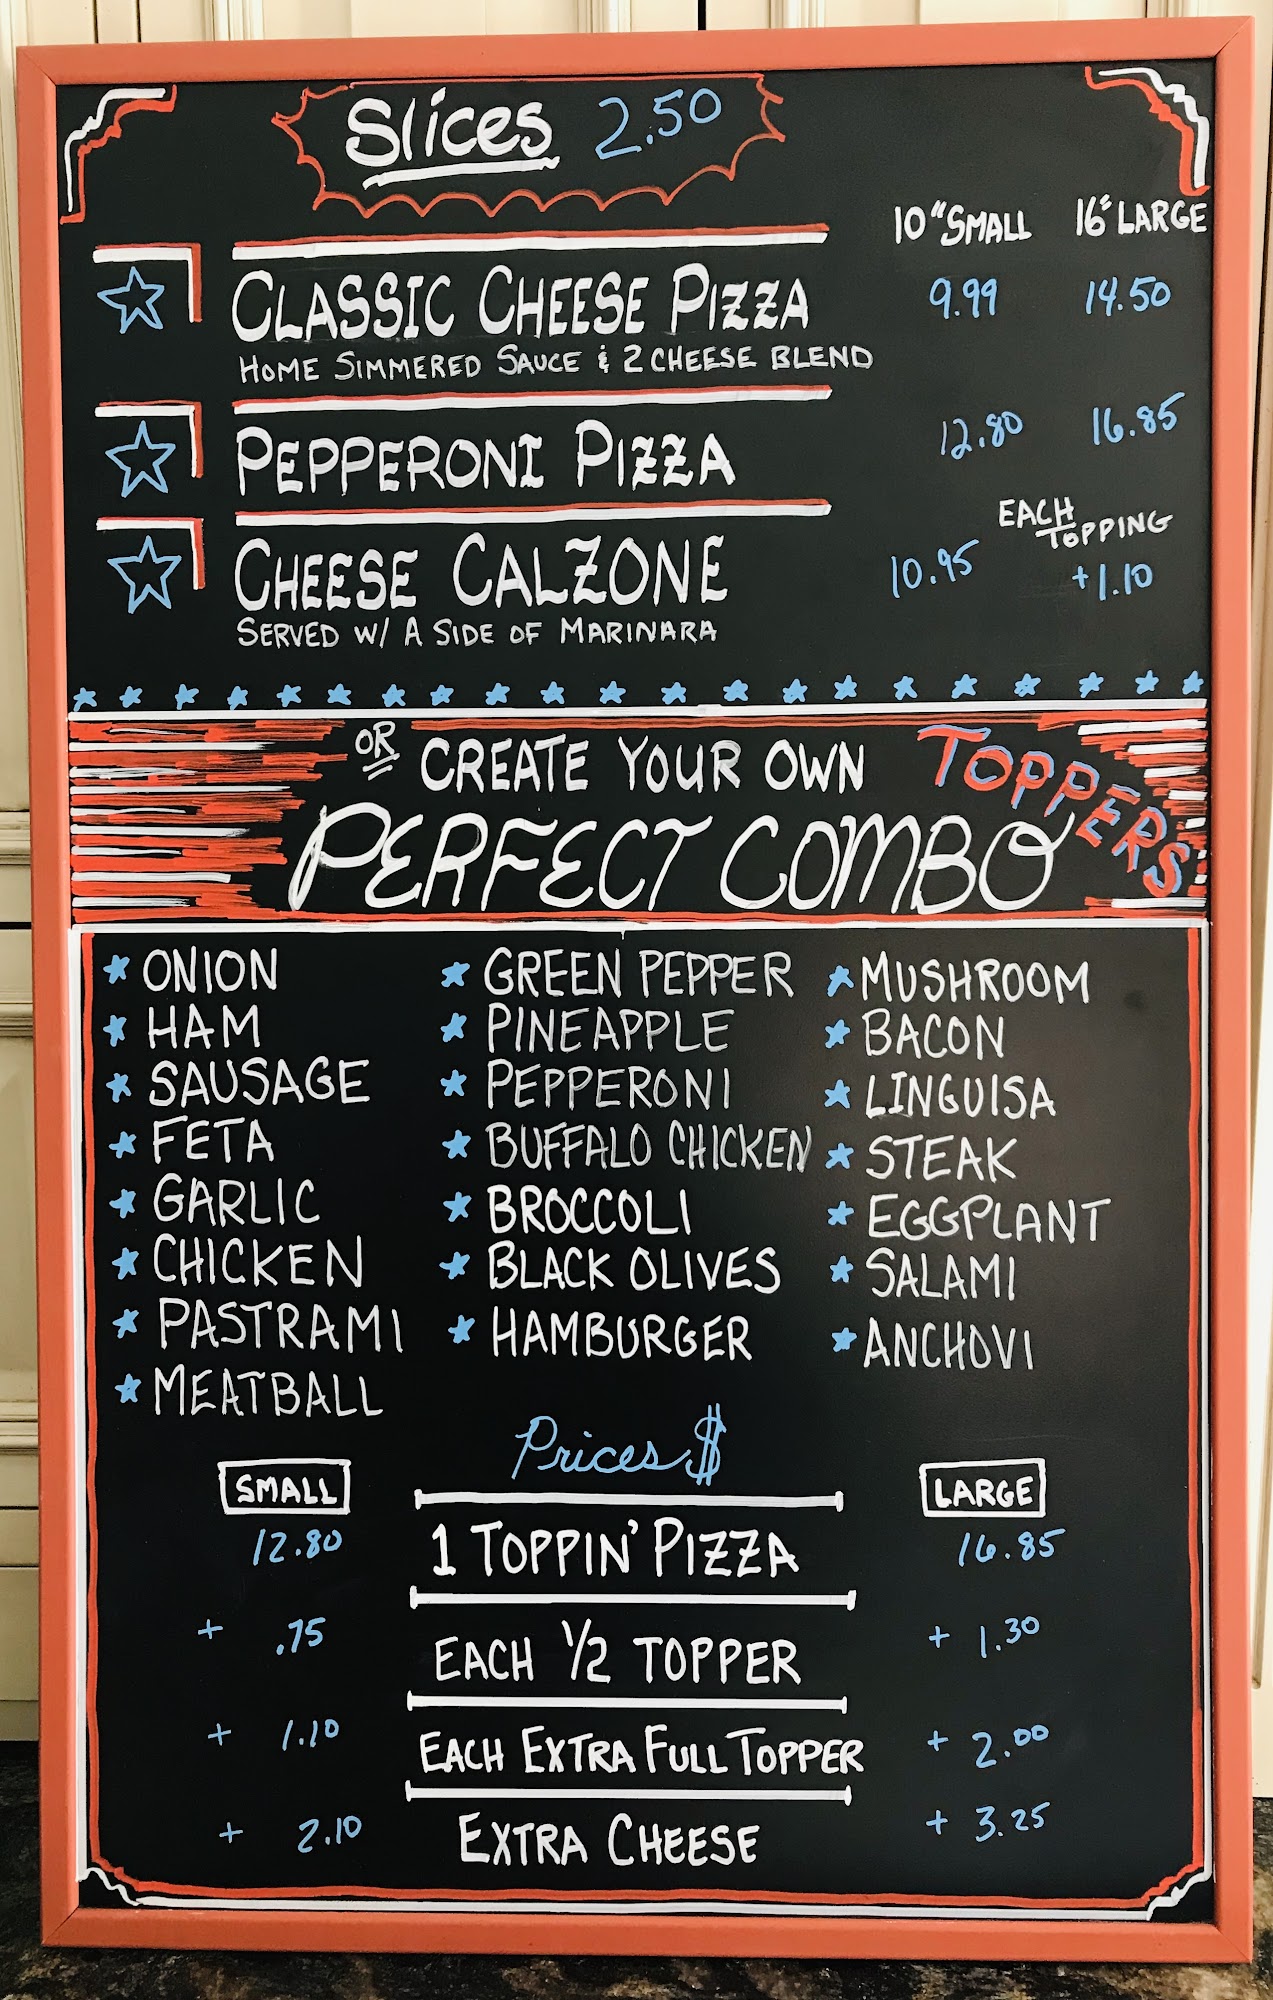 Slices 2.50
10" SMALL 16" LARGE
CLASSIC CHEESE PIZZA 9.99 14.50
HOME SIMMERED SAUCE & 2 CHEESE BLEND
PEPPERONI PIZZA 12.80 16.85
EACH TOPPING
CHEESE CALZONE 10.95 +1.10
SERVED W/ A SIDE OF MARINARA
OR CREATE YOUR OWN TOPPERS
PERFECT COMBO
ONION GREEN PEPPER MUSHROOM
HAM PINEAPPLE BACON
SAUSAGE PEPPERONI LINGUISA
FETA BUFFALO CHICKEN STEAK
GARLIC BROCCOLI EGGPLANT
CHICKEN BLACK OLIVES SALAMI
PASTRAMI HAMBURGER ANCHOVI
MEATBALL
Prices $
SMALL LARGE
12.80 1 TOPPIN' PIZZA 16.85
+ .75 EACH 1/2 TOPPER + 1.30
+ 1.10 EACH EXTRA FULL TOPPER + 2.00
+ 2.10 EXTRA CHEESE + 3.25